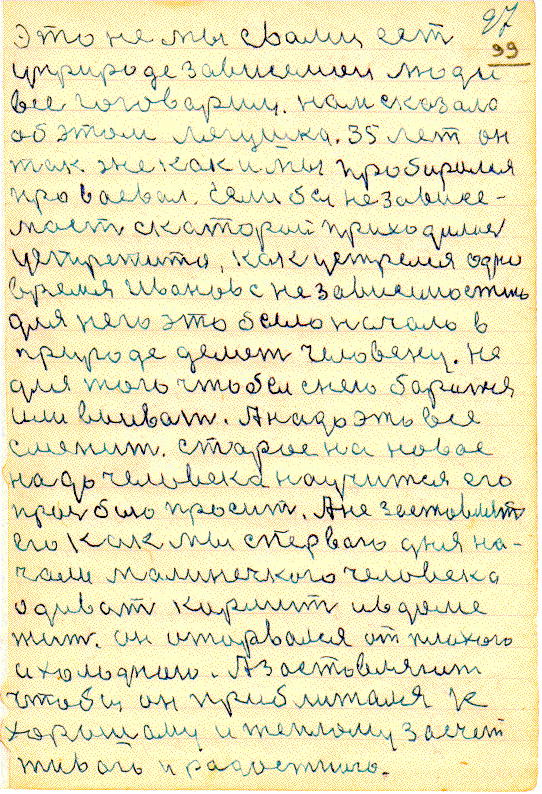 97
99
это не мы с вами ест
природе зависемои люди
все гоговарим. нам сказала
об этом легушка. 35 лет он
так же как и мы пробирался
про ваевал. Если бы независе-
маст скаторай приходился
устретита, как устреля одно
время Иванов с независимостию
для него это было начало в
природе делает человеку. не
для того чтобы снею баратя
или вливат. А надо это все
сменит. старое на новае
надо человека научится его
прозбаю просит. А не заставлят
его как мы с перваго дня на-
чали малинечкого человека
одиват кормит и в доме
жит. он оторвался от плохого
и холоднаго. А заставляит
чтобы он приближался к
хорошаму и теплому засчет
живаго и радостнаго.